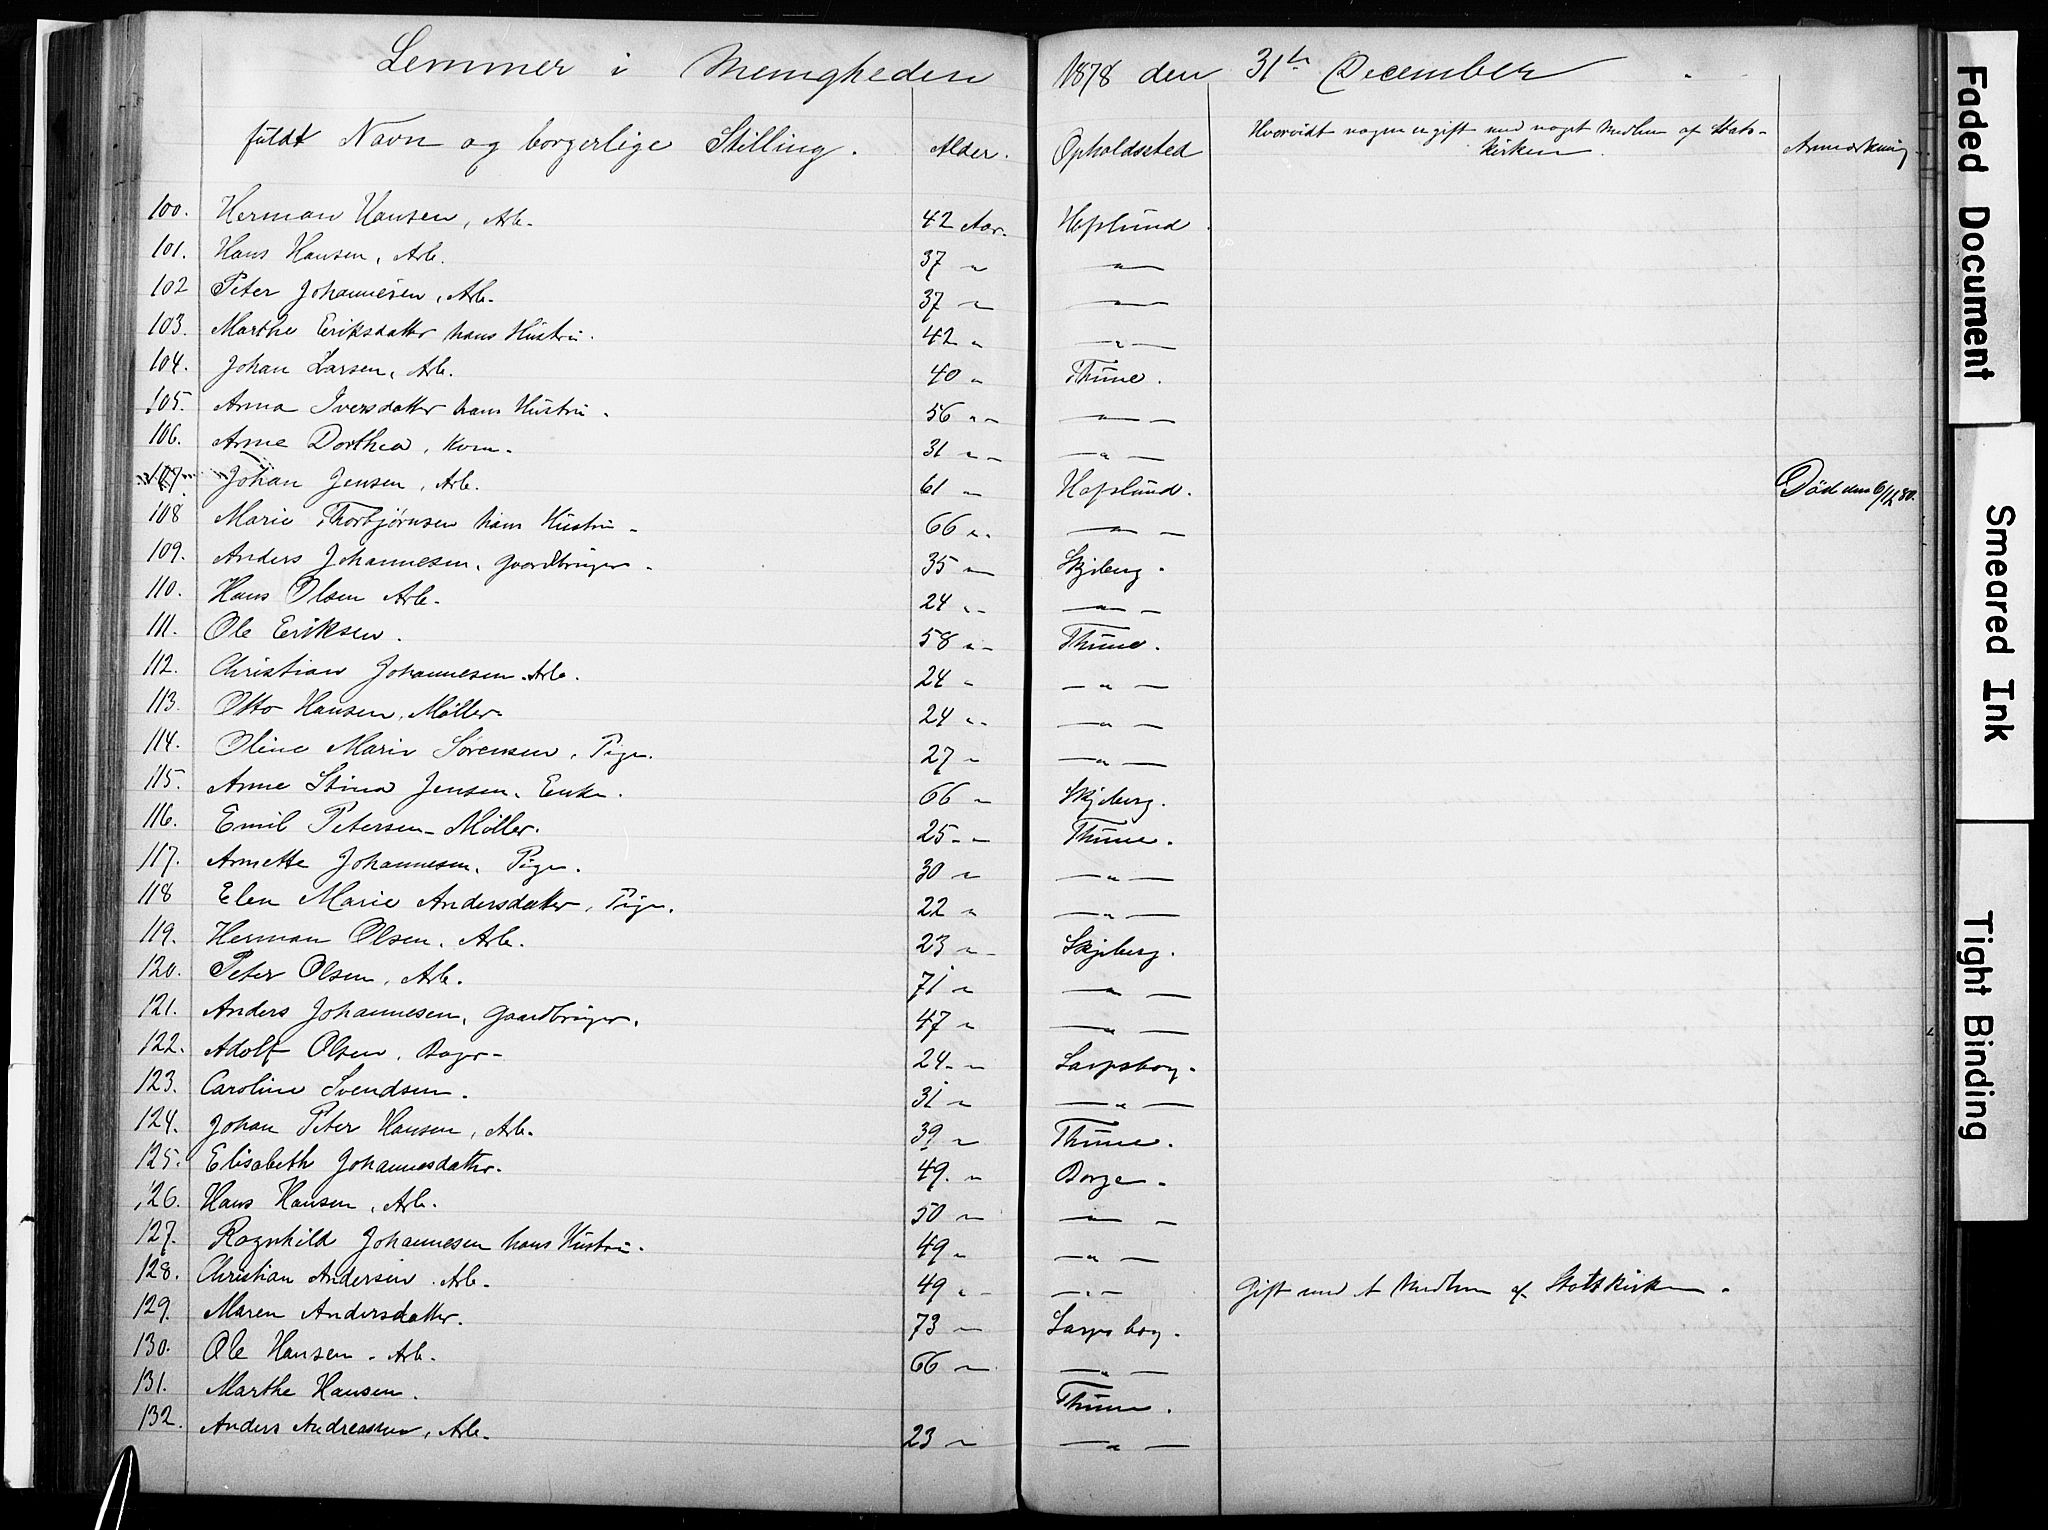 Lemmer i Menigheden 1878 den 31te December
fuldt Navn og borgerlige Stilling. Alder. Opholdssted Hvorvidt nogen er gift med noget Medlem af Stats-
kirken. Anmærkning
100. Herman Hansen, Arb. 42 Aar. Hafslund.
101. Hans Hansen, Arb. 37 " — " —
102 Peter Johannesen, Arb. 37 " — " —
103. Marthe Eriksdatter hans Hustru. 42 " — " —
104. Johan Larsen, Arb. 40 " Thune.
105. Anna Iversdatter hans Hustru. 56 " — " —
106. Anne Dorthea, Kone. 31 " — " —
107. Johan Jensen, Arb. 61 " Hafslund. Død den 6/12 80.
108 Marie Thorbjørnsen hans Hustru 66 " — " —
109. Anders Johannesen, Gaardbruger. 35 " Skjeberg.
110. Hans Olsen Arb. 24 " — " —
111. Ole Eriksen. 58 " Thune.
112. Christian Johannesen. Arb. 24 " — " —
113. Otto Hansen, Møller 24 " — " —
114. Oline Marie Sørensen, Pige. 27 " — " —
115. Anne Stina Jensen, Enke. 66 " Skjeberg.
116. Emil Petersen – Møller. 25 " Thune.
117. Annette Johannesen, Pige. 30 " — " —
118 Elen Marie Andersdatter, Pige. 22 " — " —
119. Herman Olsen, Arb. 23 " Skjeberg.
120. Peter Olsen, Arb. 71 " — " —
121. Anders Johannesen, Gaardbruger. 47 " — " —
122. Adolf Olsen, Bager 24 " Sarpsborg.
123. Caroline Svendsen. 31 " — " —
124. Johan Peter Hansen, Arb. 39 " Thune.
125. Elisabeth Johannesdatter. 49. " Borge.
126. Hans Hansen, Arb. 50 " — " —
127. Ragnhild Johannesen hans Hustru. 49 " — " —
128. Christian Andersen. Arb. 49 " — " — Gift med et Medlem af Statskirken.
129. Maren Andersdatter. 73 " Sarpsborg.
130. Ole Hansen. Arb. 66 " — " —
131. Marthe Hansen. Thune.
132. Anders Andreassen, Arb. 23 " — " —
Faded Document
Smeared Ink
Tight Binding